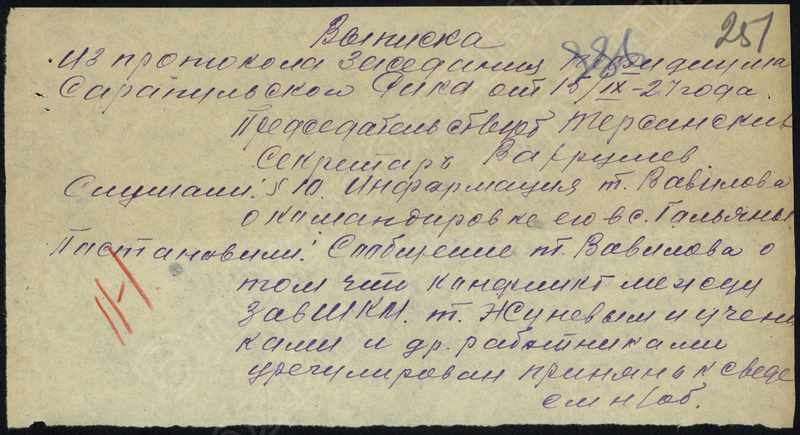 251
Выписка
из протокола заседания президиума
Сарапульского Рика от 15/IX-27 года.
Председательствует Терсинских
Секретарь Вахрушев
Слушали: § 10. Информация т. Вавилова
о камандировке его в с. Гальяны
Пастановили: Сообщение т. Вавилова о
том что канфликт между
Зав ШКМ. т. Жуневым и учени
ками и др. работниками
урегулирован принять к сведе